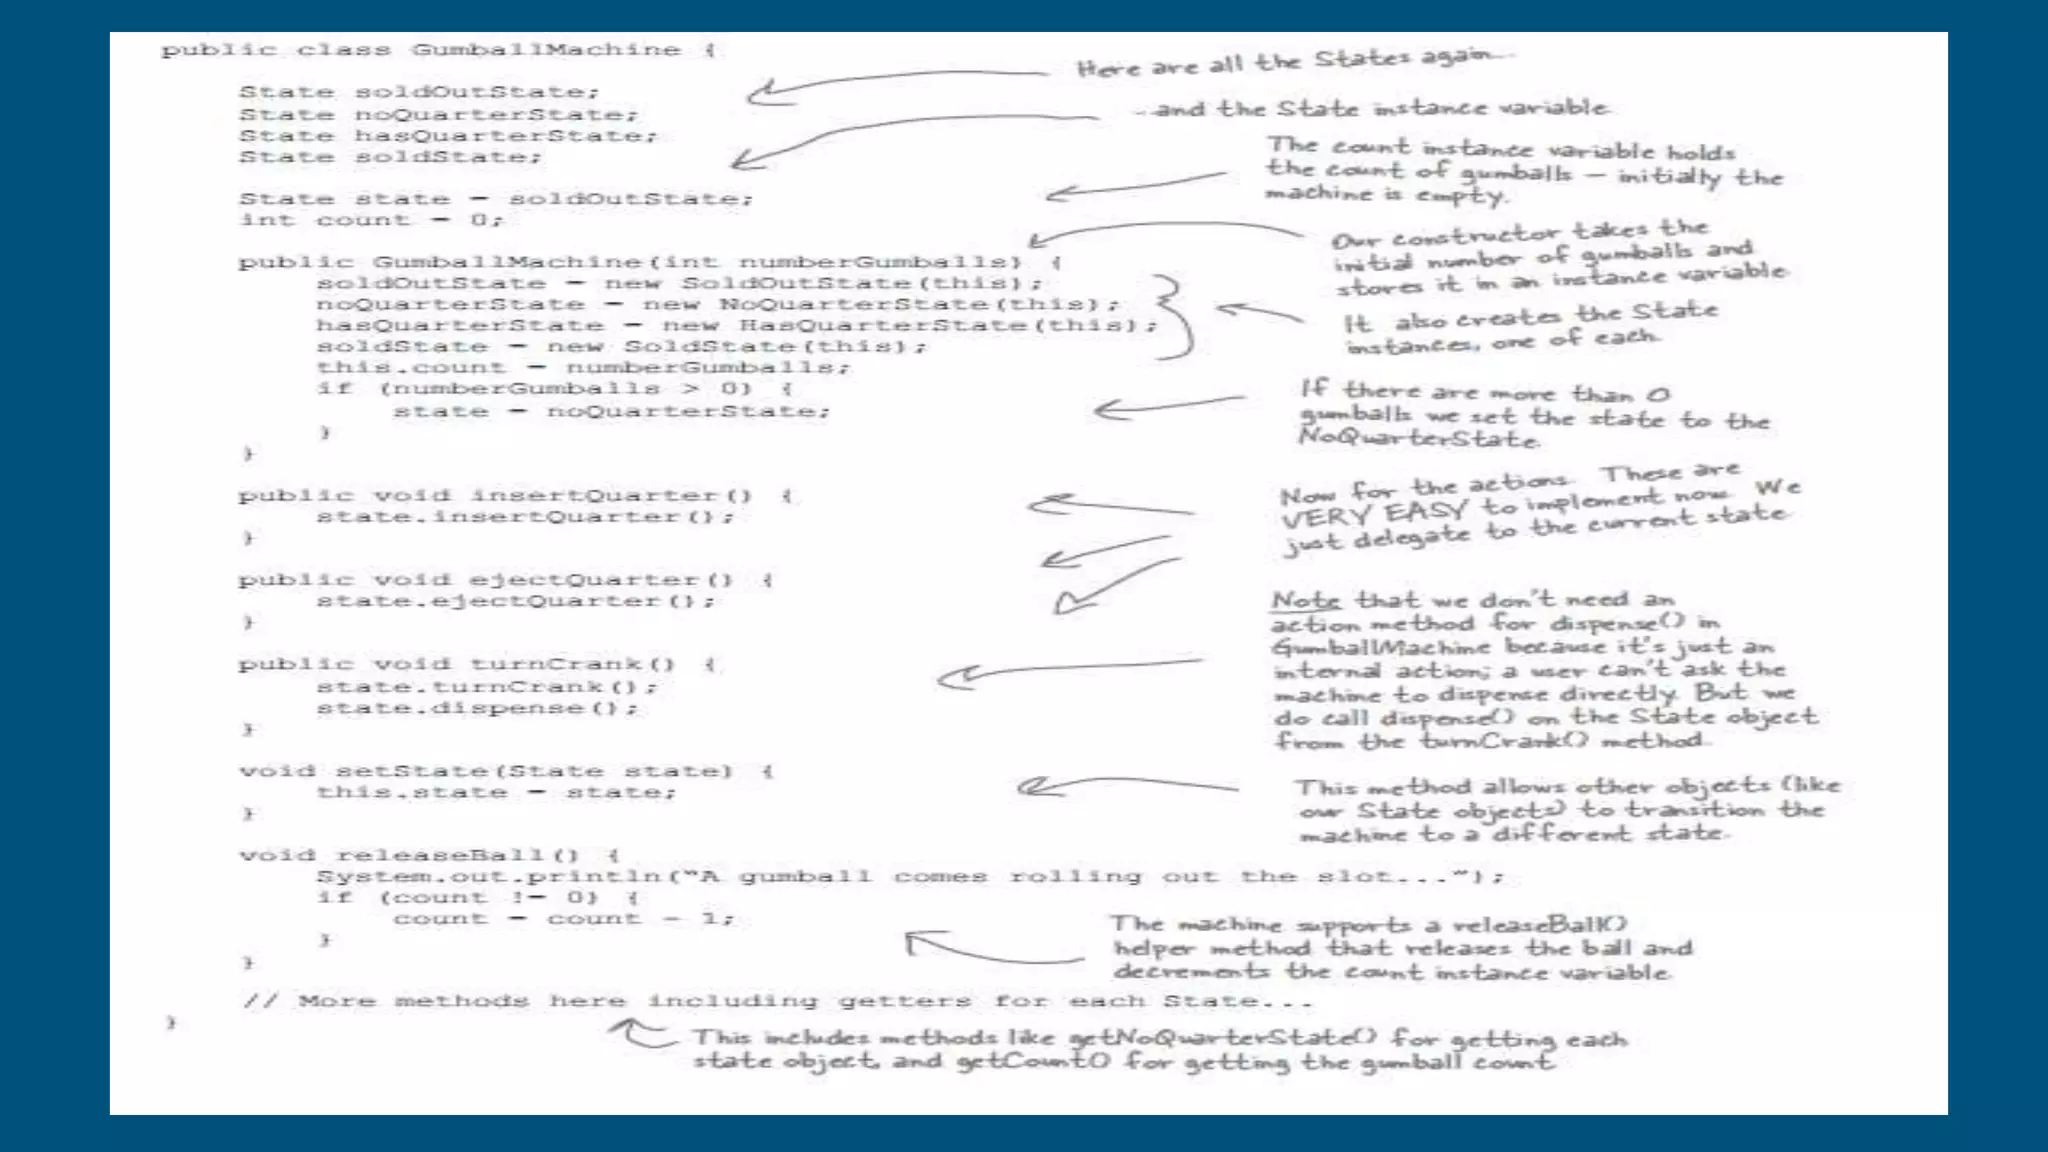 public class GumballMachine {
Here are all the States again...
State soldOutState;
State noQuarterState;
State hasQuarterState;
State soldState;
...and the State instance variable.
The count instance variable holds
the count of gumballs – initially the
machine is empty.
State state = soldOutState;
int count = 0;
Our constructor takes the
initial number of gumballs and
stores it in an instance variable.
It also creates the State
instances, one of each.
public GumballMachine(int numberGumballs) {
soldOutState = new SoldOutState(this);
noQuarterState = new NoQuarterState(this);
hasQuarterState = new HasQuarterState(this);
soldState = new SoldState(this);
this.count = numberGumballs;
if (numberGumballs > 0) {
state = noQuarterState;
}
}
If there are more than 0
gumballs we set the state to the
NoQuarterState.
public void insertQuarter() {
state.insertQuarter();
}
Now for the actions. These are
VERY EASY to implement now. We
just delegate to the current state.
public void ejectQuarter() {
state.ejectQuarter();
}
public void turnCrank() {
state.turnCrank();
state.dispense();
}
Note that we don't need an
action method for dispense() in
GumballMachine because it's just an
internal action; a user can't ask the
machine to dispense directly. But we
do call dispense() on the State object
from the turnCrank() method.
void setState(State state) {
this.state = state;
}
This method allows other objects (like
our State objects) to transition the
machine to a different state.
void releaseBall() {
System.out.println("A gumball comes rolling out the slot...");
if (count != 0) {
count = count - 1;
}
}
The machine supports a releaseBall()
helper method that releases the ball and
decrements the count instance variable.
// More methods here including getters for each State...
}
This includes methods like getNoQuarterState() for getting each
state object, and getCount() for getting the gumball count.